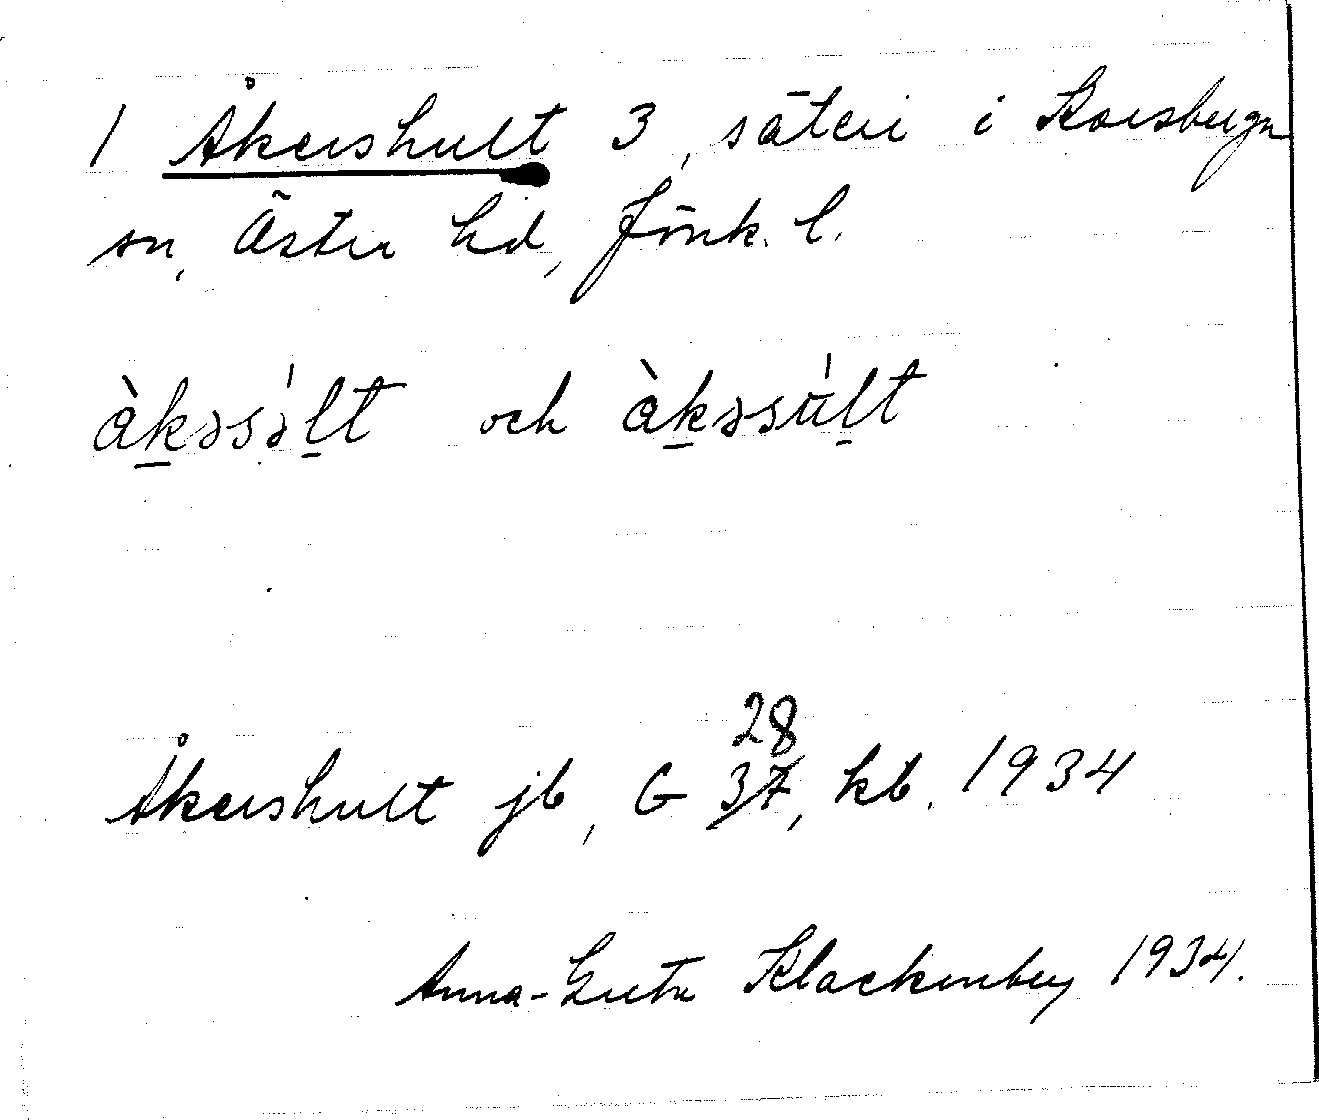 1 Åkershult 3, säteri i Korsberga
sn, Östra hd, Jönk. l.
àkəsə̍lt och àkəsu̍lt
28
Åkershult jb, G 37, kb. 1934
Anna-Greta Klackenberg 1934.